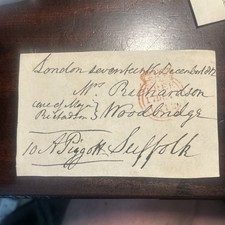 London seventeenth December 1812
Mrs Richardson
care of Major
Richardson } Woodbridge
10 A Piggott Suffolk